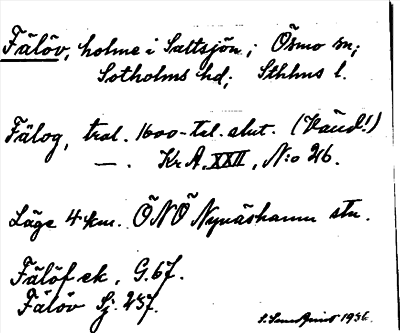 Fälöv, holme i Saltsjön; Ösmo sn;
Sotholms hd; Sthlms l.
Fälog, tral. 1600-tal. slut. (Vänd!)
— . Kr A. XXII, N:o 26.
Läge 4 km. ÖNÖ Nynäshamn stn.
Fälöf ek, G. 67.
Fälöv Sj. 257.
1936.